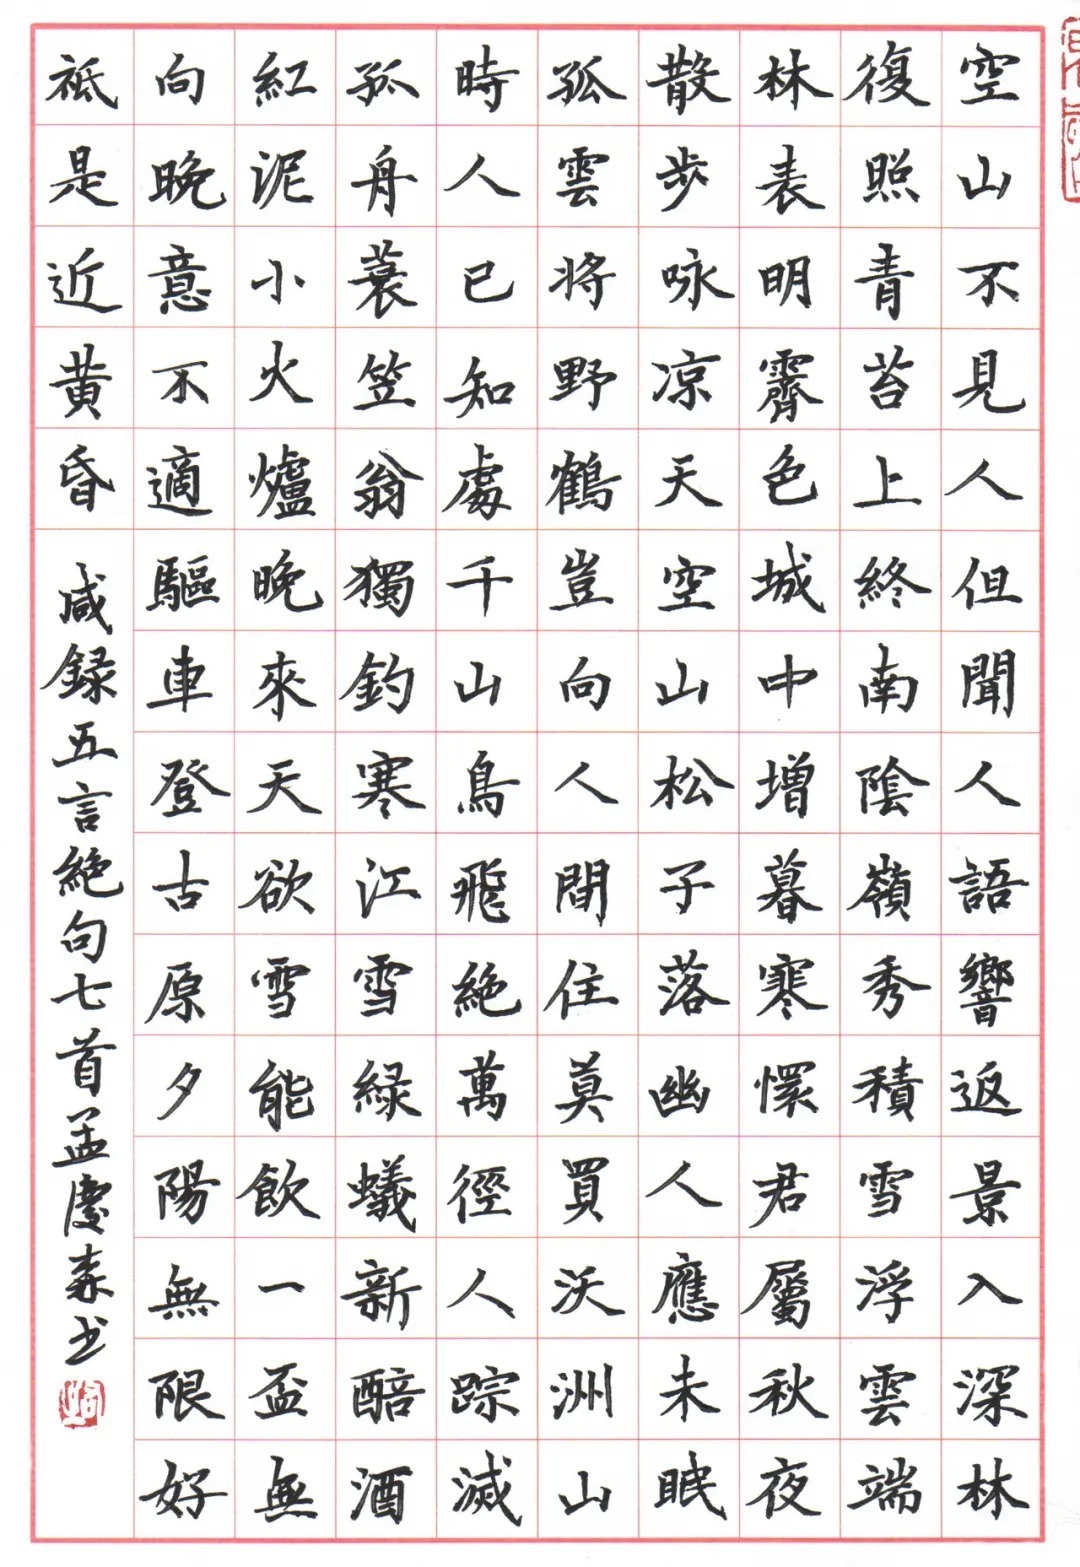 空山不見人但聞人語響返景入深林
復照青苔上終南陰嶺秀積雪浮雲端
林表明霽色城中增暮寒懷君屬秋夜
散步咏凉天空山松子落幽人應未眠
孤雲將野鶴豈向人間住莫買沃洲山
時人已知處千山鳥飛絶萬徑人踪滅
孤舟蓑笠翁獨釣寒江雪緑蟻新醅酒
紅泥小火爐晚來天欲雪能飲一盃無
向晚意不適驅車登古原夕陽無限好
祗是近黄昏
咸録五言絶句七首孟慶森书